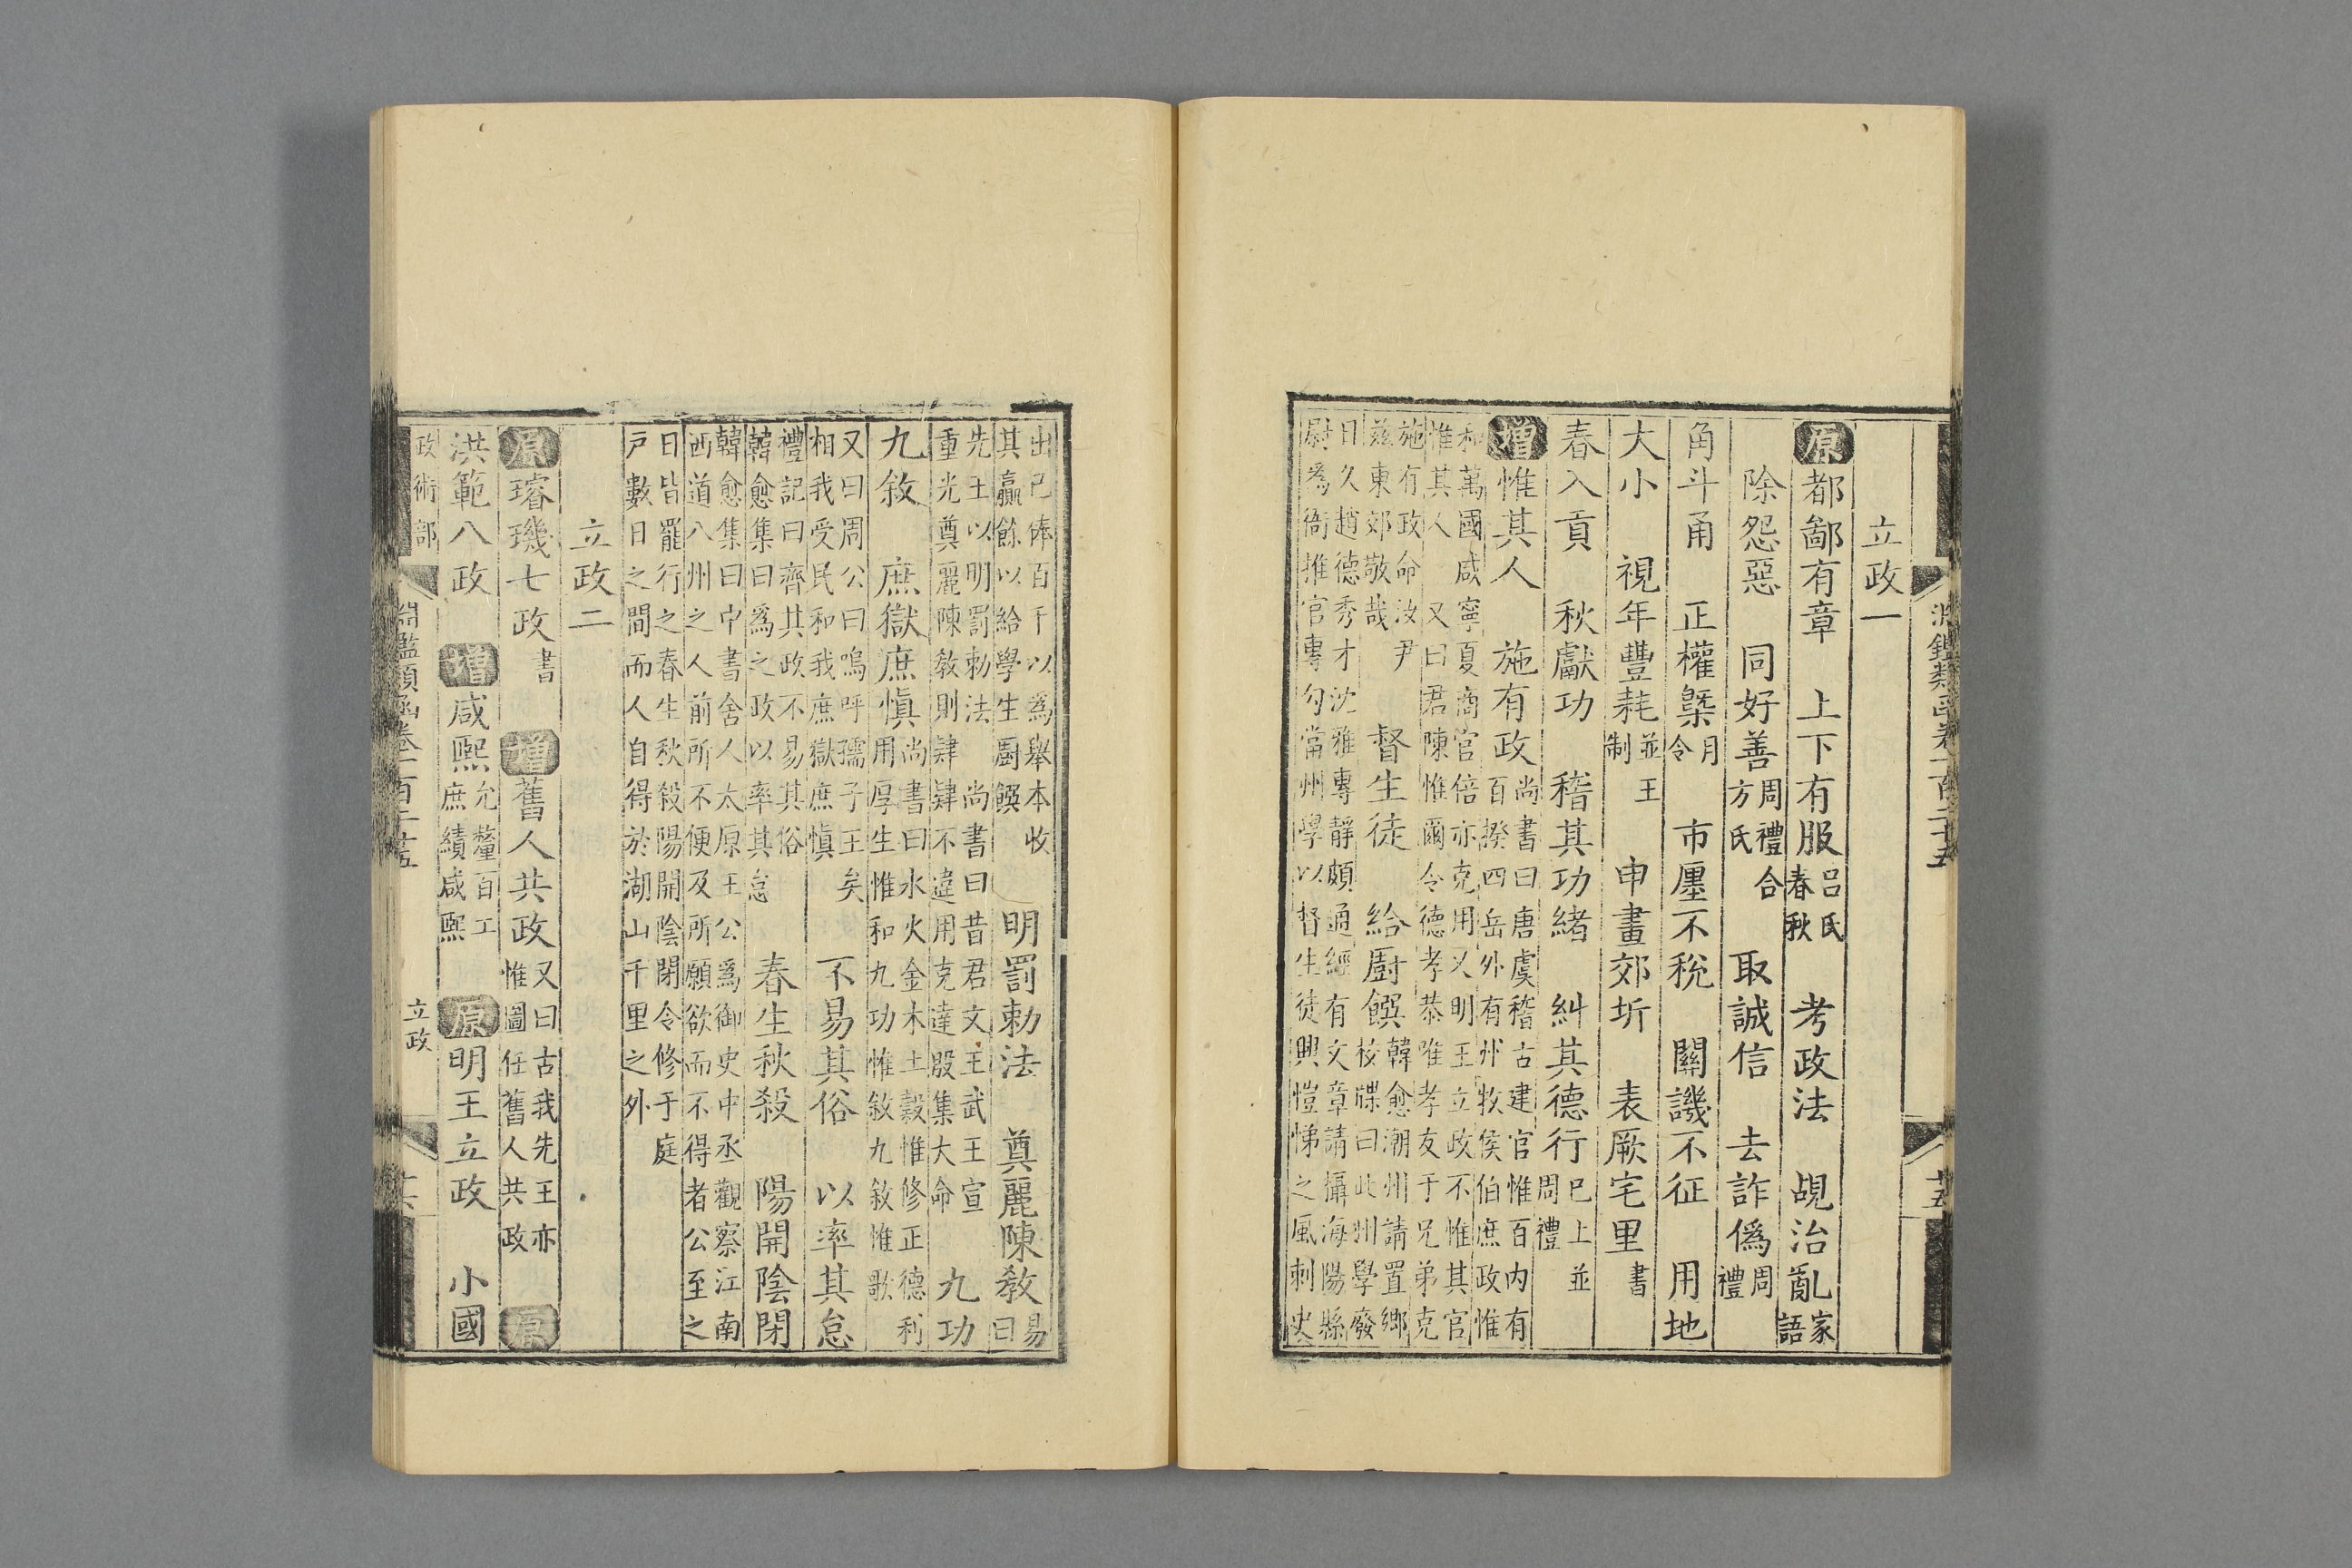 淵鑑類函卷一百二十五
十五
立政一
原都鄙有章　上下有服呂氏春秋　考政法　覘治亂家語
除怨惡　同好善周禮合方氏　取誠信　去詐僞周禮
角斗甬　正權槩月令　市廛不稅　關譏不征　用地
大小　視年豐耗並王制　申畫郊圻　表厥宅里書
春入貢　秋獻功　稽其功緒　糾其德行已上並周禮
增惟其人　施有政尚書曰唐虞稽古建官惟百内有百揆四岳外有州牧侯伯庶政惟
和萬國咸寧夏商官倍亦克用乂明王立政不惟其官惟其人　又曰君陳惟爾令德孝恭唯孝友于兄弟克
施有政命汝尹茲東郊敬哉　督生徒　給廚饌韓愈潮州請置鄉校牒曰此州學廢
日久趙德秀才沈雅專靜頗通經有文章請攝海陽縣尉爲衙推官專勾當州學以督生徒興愷悌之風刺史
出已俸百千以爲舉本收其贏餘以給學生廚饌　明罰勅法　奠麗陳教易曰
先王以明罰勅法　尚書曰昔君文王武王宣重光奠麗陳教則肄肄不違用克達殷集大命　九功
九敘　庶獄庶慎尚書曰水火金木土穀惟修正德利用厚生惟和九功惟敘九敘惟歌
又曰周公曰嗚呼孺子王矣相我受民和我庶獄庶慎　不易其俗　以率其怠
禮記曰齊其政不易其俗韓愈集曰爲之政以率其怠　春生秋殺　陽開陰閉
韓愈集曰中書舍人太原王公爲御史中丞觀察江南西道八州之人前所不便及所願欲而不得者公至之
日皆罷行之春生秋殺陽開陰閉令修于庭戸數日之間而人自得於湖山千里之外
立政二
原璿璣七政書　增舊人共政又曰古我先王亦惟圖任舊人共政　原
洪範八政　增咸熙允釐百工庶績咸熙　原明王立政　小國
政術部
淵鑑類函卷一百二十五
立政
十六